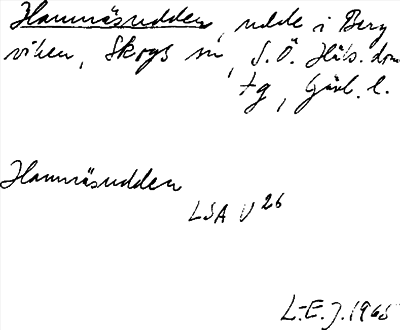 Hamnäsudden, udde i Berg
viken, Skogs sn, S.Ö. Häls. dom
tg, Gävl. l.
Hamnäsudden
LSA U 26
L-E. J. 1965